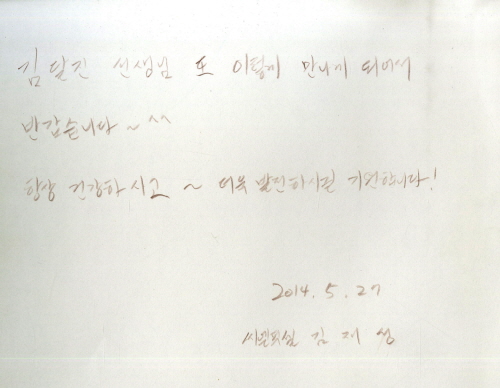 김달진 선생님 또 이렇게 만나게 되어서
반갑습니다~^^
항상 건강하시고 ~ 더욱 발전하시길 기원합니다!
2014. 5. 27
김재성